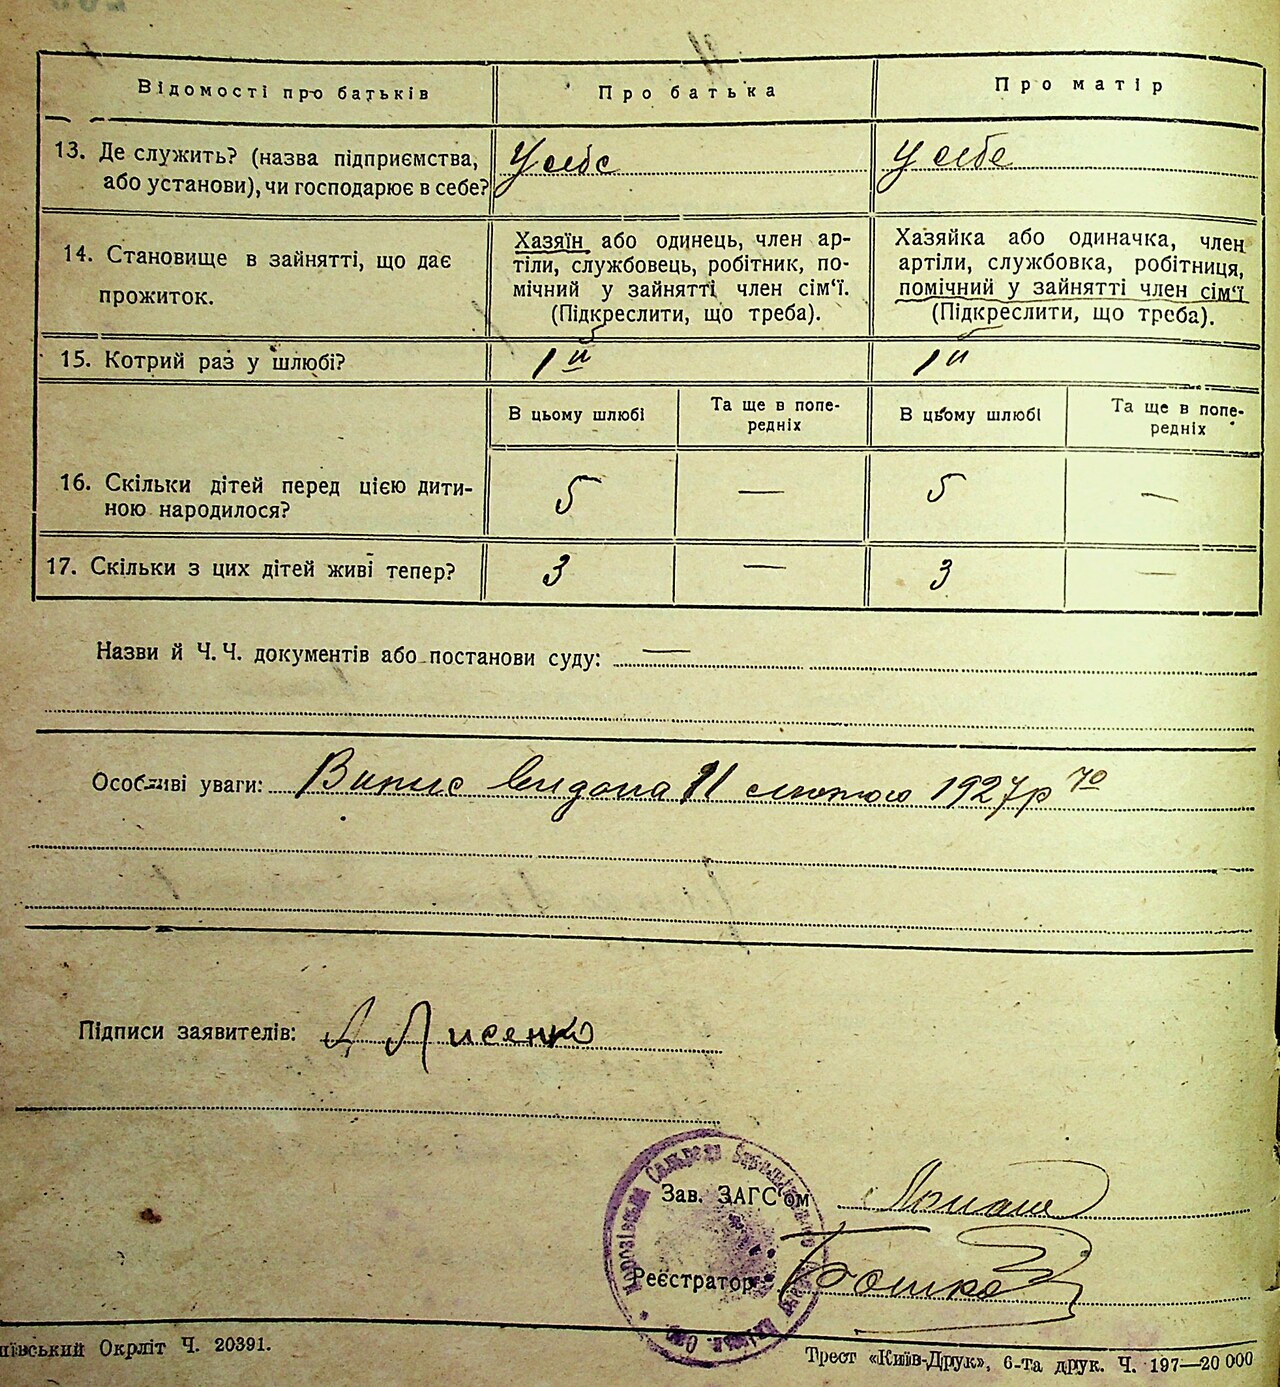 Відомості про батьків
Про батька
Про матір
13. Де служить? (назва підприємства,
або установи), чи господарює в себе?
У себе
У себе
14. Становище в зайнятті, що дає
прожиток.
Хазяїн або одинець, член ар-
тіли, службовець, робітник, по-
мічний у зайнятті член сім'ї.
(Підкреслити, що треба).
Хазяйка або одиначка, член
артіли, службовка, робітниця,
помічний у зайнятті член сім'ї
(Підкреслити, що треба).
15. Котрий раз у шлюбі?
1й
1й
В цьому шлюбі
Та ще в попе-
редніх
В цьому шлюбі
Та ще в попе-
редніх
16. Скільки дітей перед цією дити-
ною народилося?
5
—
5
—
17. Скільки з цих дітей живі тепер?
3
—
3
—
Назви й Ч. Ч. документів або постанови суду: —
Особливі уваги: Випис видана 11 лютого 1927р
Підписи заявителів: А Лисенко
Зав. ЗАГС'ом
Реєстратор
Окрліт Ч. 20391.
Трест «Київ-Друк», 6-та друк. Ч. 197—20 000